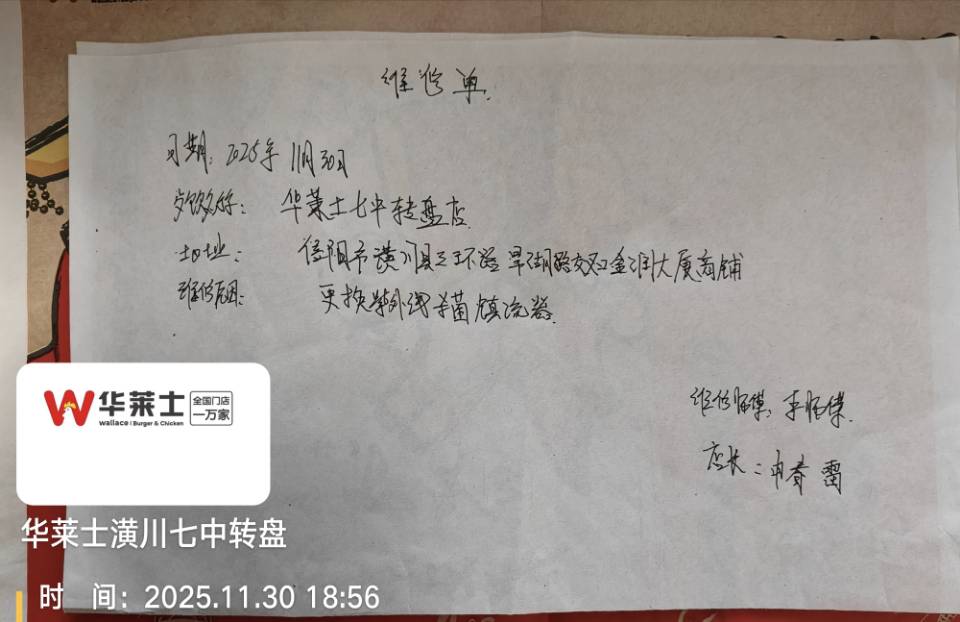 维修单.
日期: 2025年 11月30日
名称: 华莱士七中转盘店
地址: 信阳市潢川县三环路 旱湖路交叉口金润大厦商铺
维修原因: 更换紫外线杀菌镇流器.
维修师傅: 李师傅.
店长: 春雷
华莱士 全国门店
wallace Burger & Chicken 一万家
华莱士潢川七中转盘
时 间: 2025.11.30 18:56